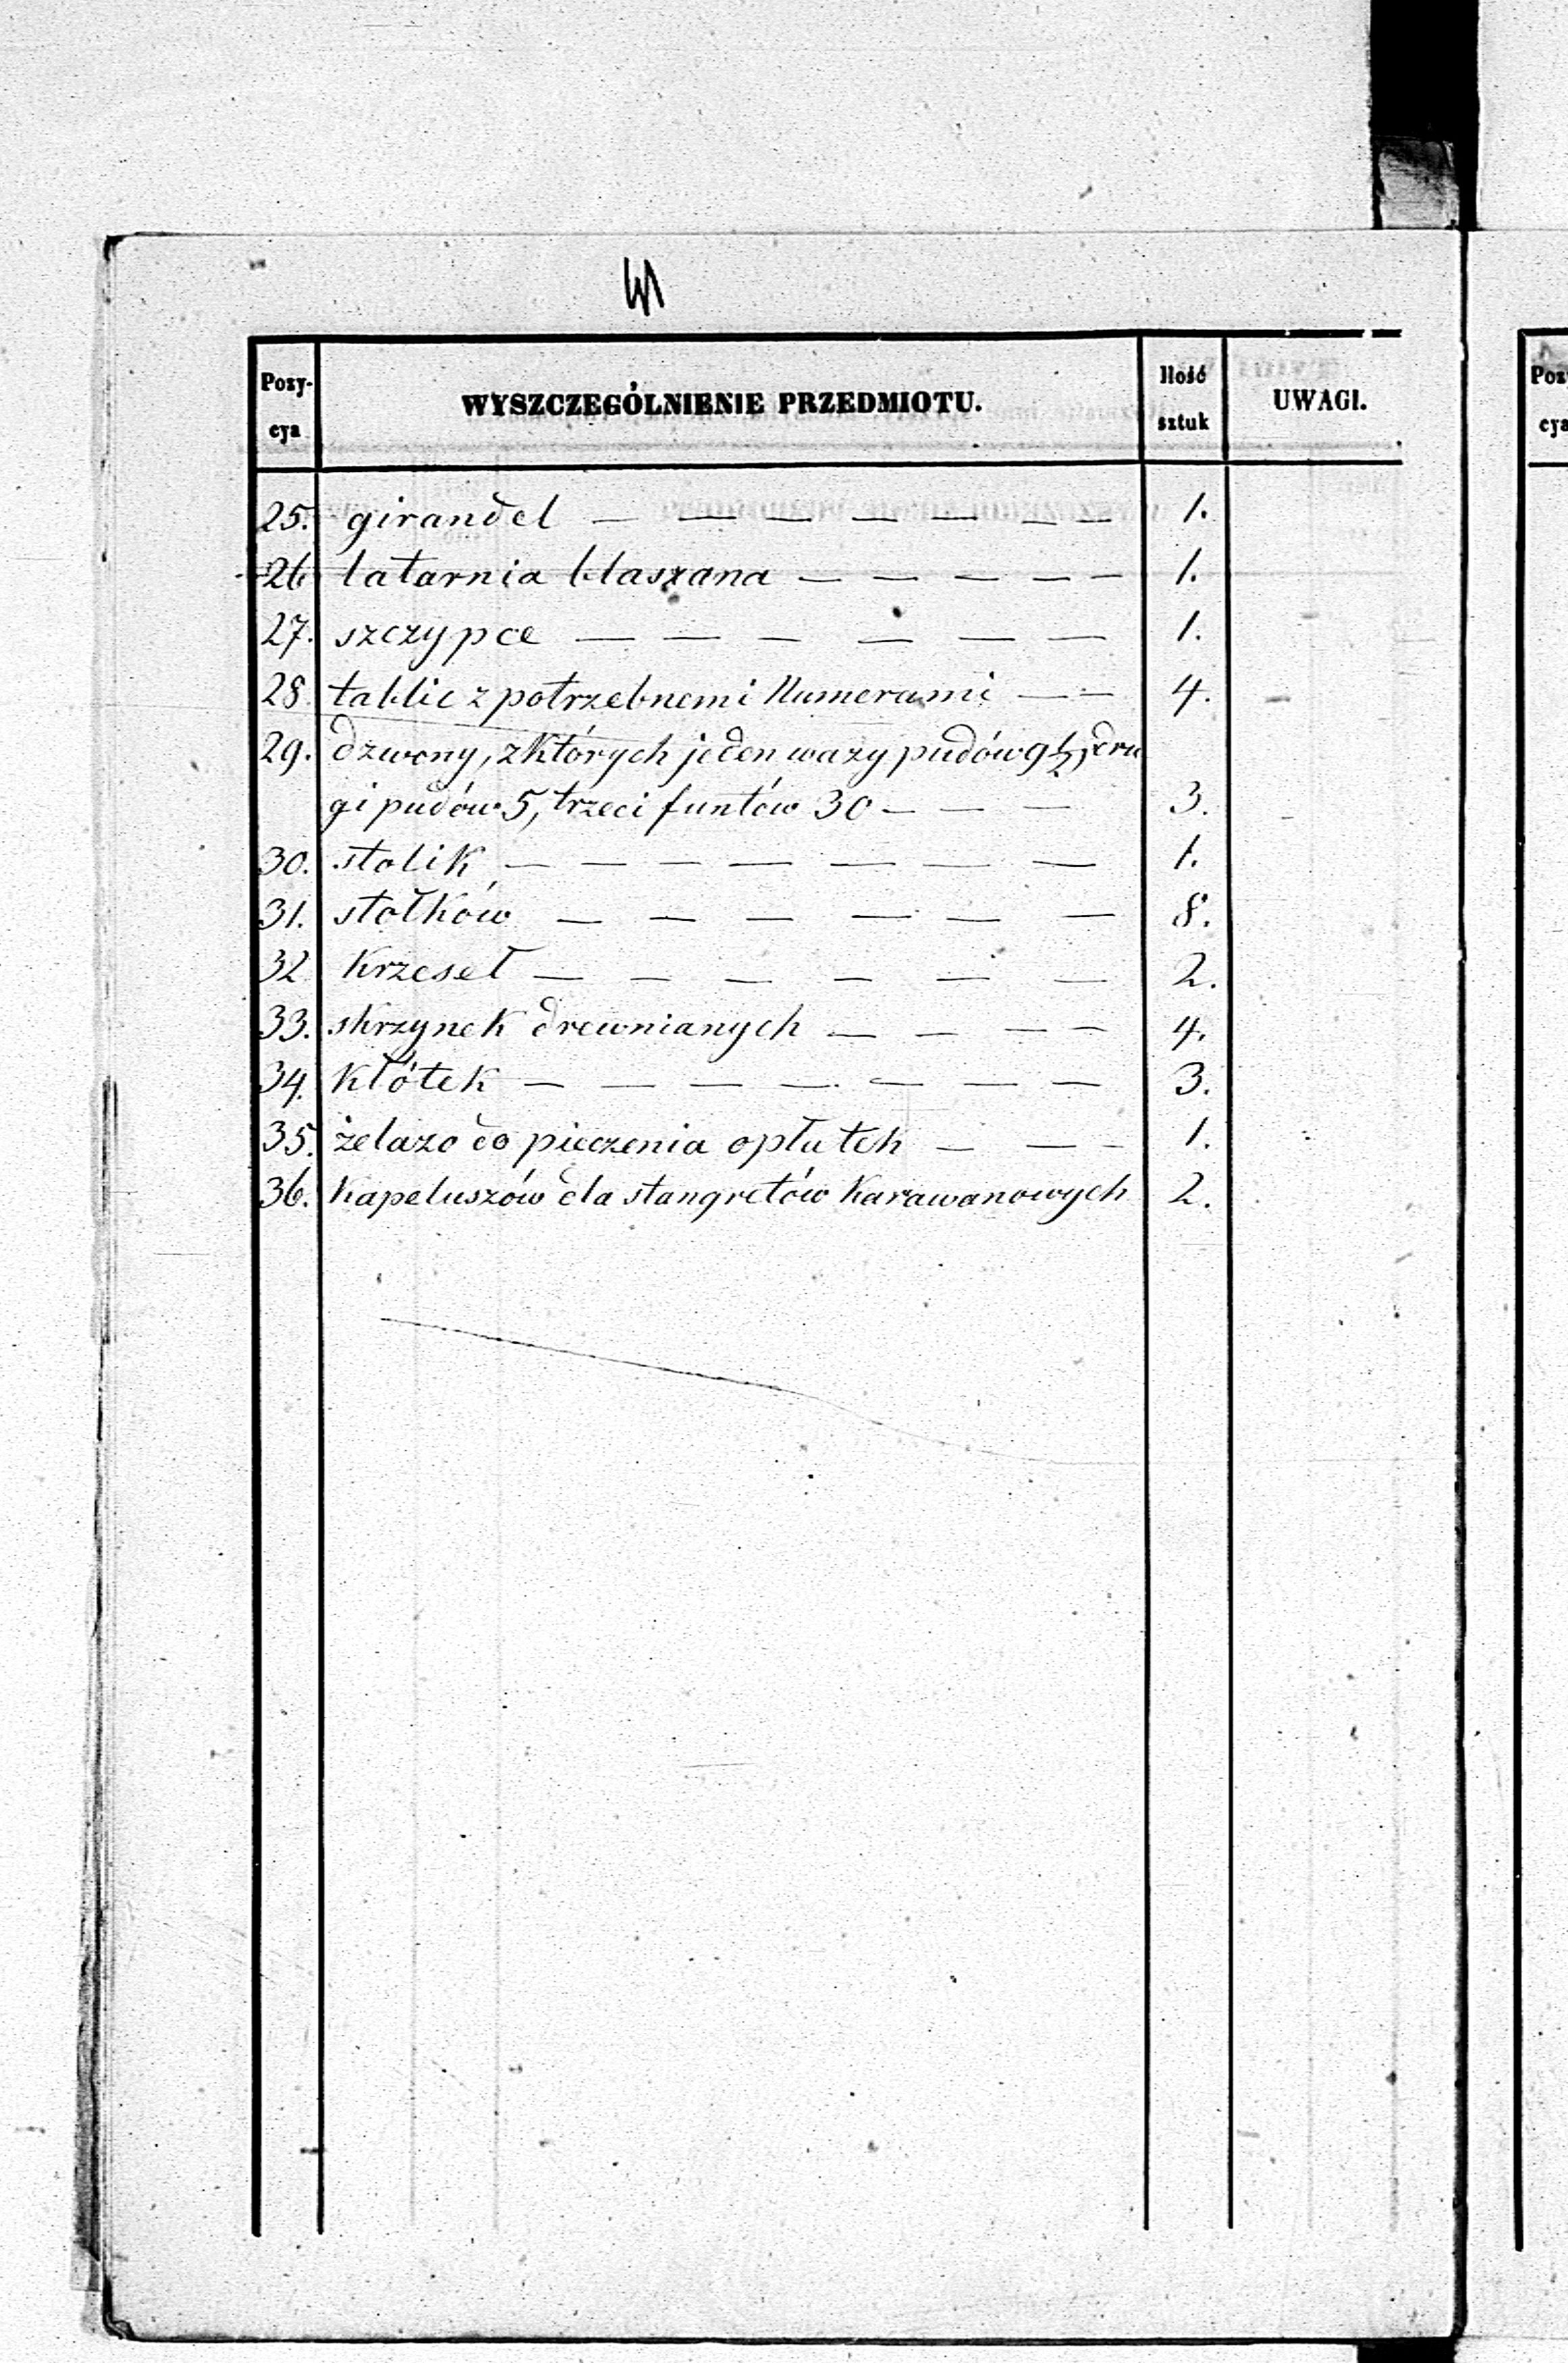 Posy-
cya
WYSZCZEGÓLNIENIE PRZEDMIOTU.
Ilość
sztuk
UWAGI.
25. girandel — — — — — — — 1.
26 latarnia blaszana — — — — — 1.
27. szczypce — — — — — — 1.
28 tablic z potrzebnemi Numerami — — 4.
29. dzwony, z których jeden wazy pudów 9½, dru
gi pudów 5, trzeci funtów 30 — — — 3.
30. stolik — — — — — — — 1.
31. stołków — — — — — — 8.
32 Krzeseł — — — — — — 2.
33. skrzynek drewnianych — — — — 4.
34. Kłótek — — — — — — — 3.
35. żelazo do pieczenia opłatek — — — 1.
36. Kapeluszów dla stangretów Karawanowych 2.
Pos
cya